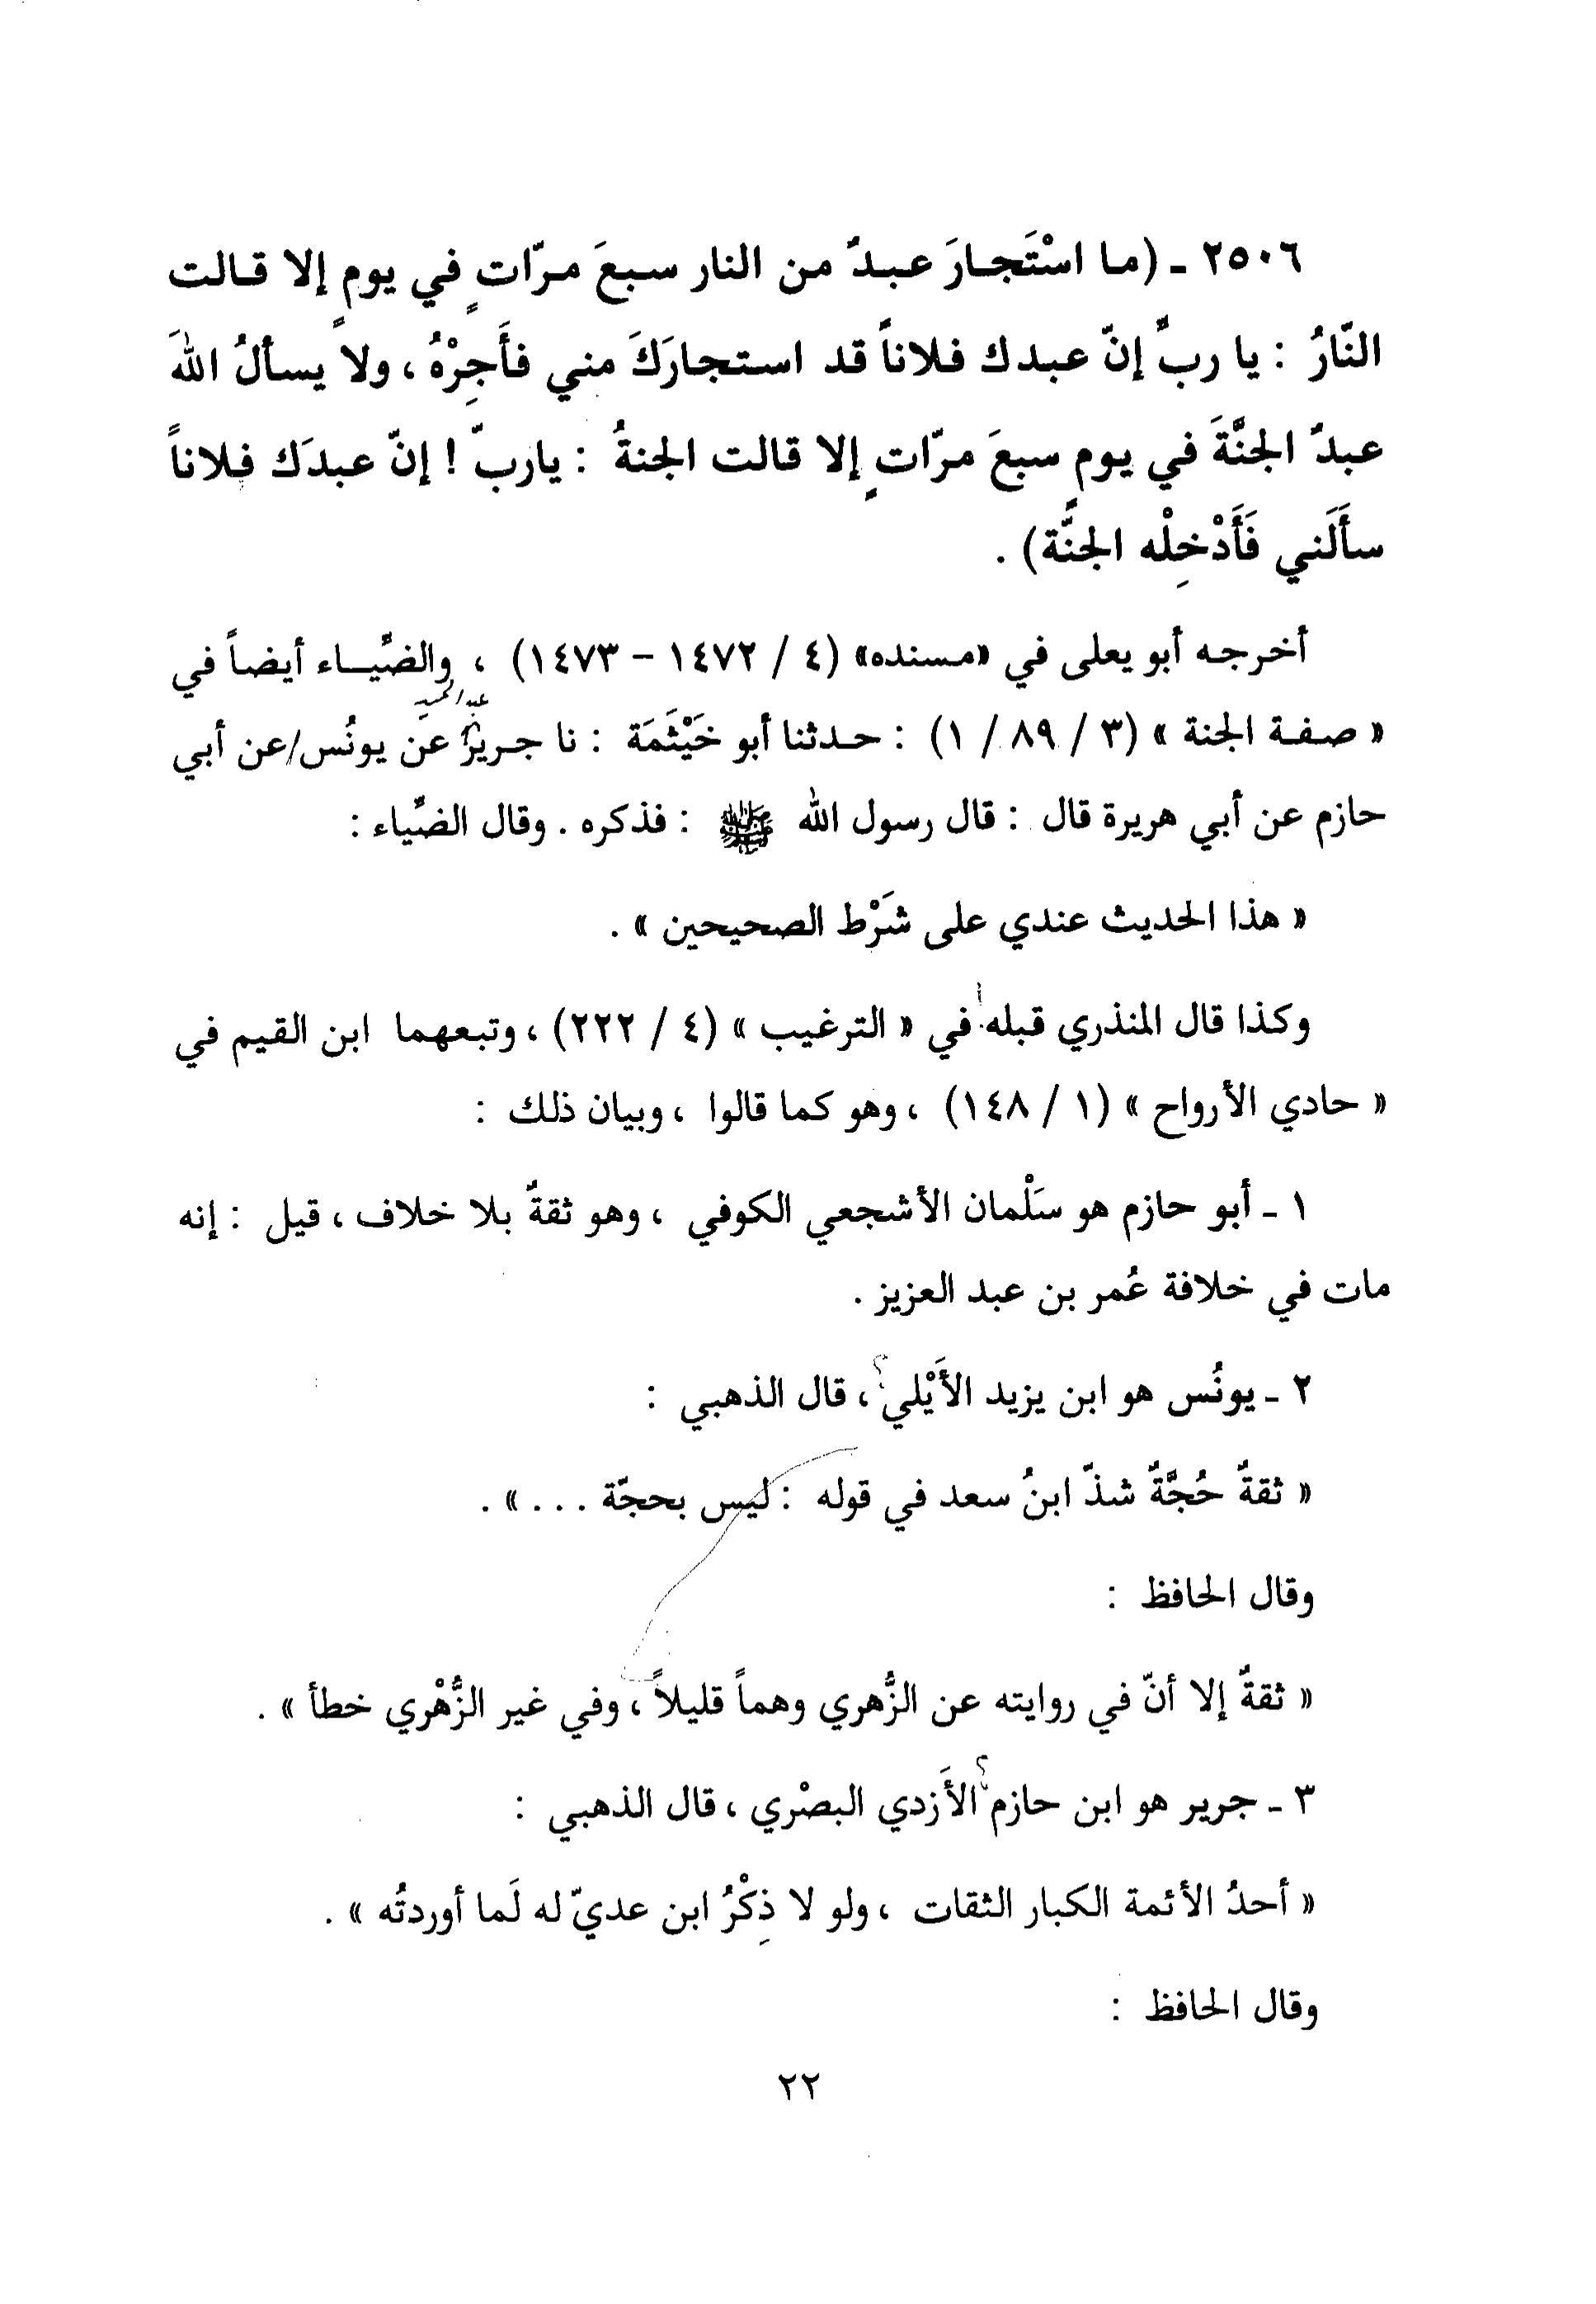 ٢٥٠٦ ـ (ما اسْتَجارَ عبدٌ من النار سبعَ مرّاتٍ في يومٍ إلا قالت
النّارُ : يا ربِّ إنّ عبدك فلاناً قد استجارَكَ مني فأَجِرْهُ ، ولا يسألُ اللهَ
عبدٌ الجنَّةَ في يومٍ سبعَ مرّاتٍ إلا قالت الجنةُ : يا ربّ ! إنّ عبدَك فلاناً
سأَلَني فَأَدْخِلْه الجنَّة) .
أخرجه أبو يعلى في «مسنده» (٤ / ١٤٧٢ – ١٤٧٣) ، والضِّياء أيضاً في
عبد الحميد
« صفة الجنة » (٣ / ٨٩ / ١) : حدثنا أبو خَيْثَمَة : نا جريرٌ عن يونُس/عن أبي
حازم عن أبي هريرة قال : قال رسول الله ﷺ : فذكره . وقال الضِّياء :
« هذا الحديث عندي على شَرْط الصحيحين » .
وكذا قال المنذري قبله في « الترغيب » (٤ / ٢٢٢) ، وتبعهما ابن القيم في
« حادي الأرواح » (١ / ١٤٨) ، وهو كما قالوا ، وبيان ذلك :
١ ـ أبو حازم هو سَلْمان الأشجعي الكوفي ، وهو ثقةٌ بلا خلاف ، قيل : إنه
مات في خلافة عُمر بن عبد العزيز .
٢ ـ يونُس هو ابن يزيد الأَيْلي ؟ ، قال الذهبي :
« ثقةٌ حُجَّةٌ شذّ ابنُ سعد في قوله : ليس بحجّة . . . » .
وقال الحافظ :
« ثقةٌ إلا أنّ في روايته عن الزُّهري وهماً قليلاً ، وفي غير الزُّهْري خطأ » .
٣ ـ جرير هو ابن حازم ؟ الأَزدي البصْري ، قال الذهبي :
« أحدُ الأئمة الكبار الثقات ، ولو لا ذِكْرُ ابن عديّ له لَما أوردتُه » .
وقال الحافظ :
٢٢